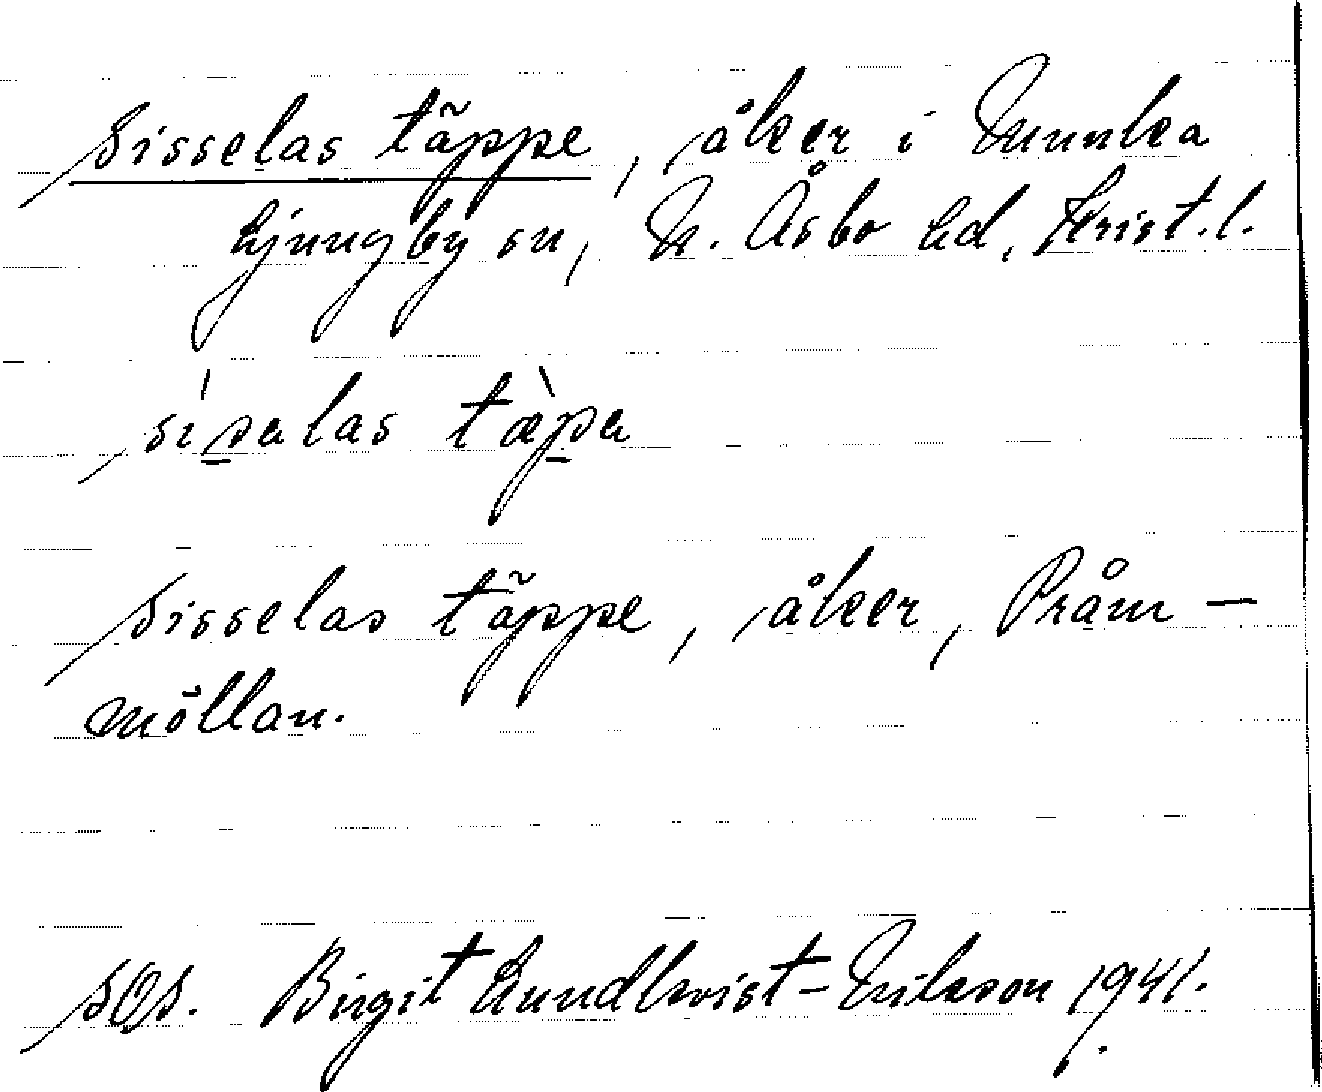 Sisselas täppe, åker i Munka
Ljungby sn, N. Åsbo hd, Krist.l.
sísalas tæ̀pa
Sisselas täppe, åker, Pråm-
möllan.
SOS. Birgit Lundkvist-Nilsson 1941.